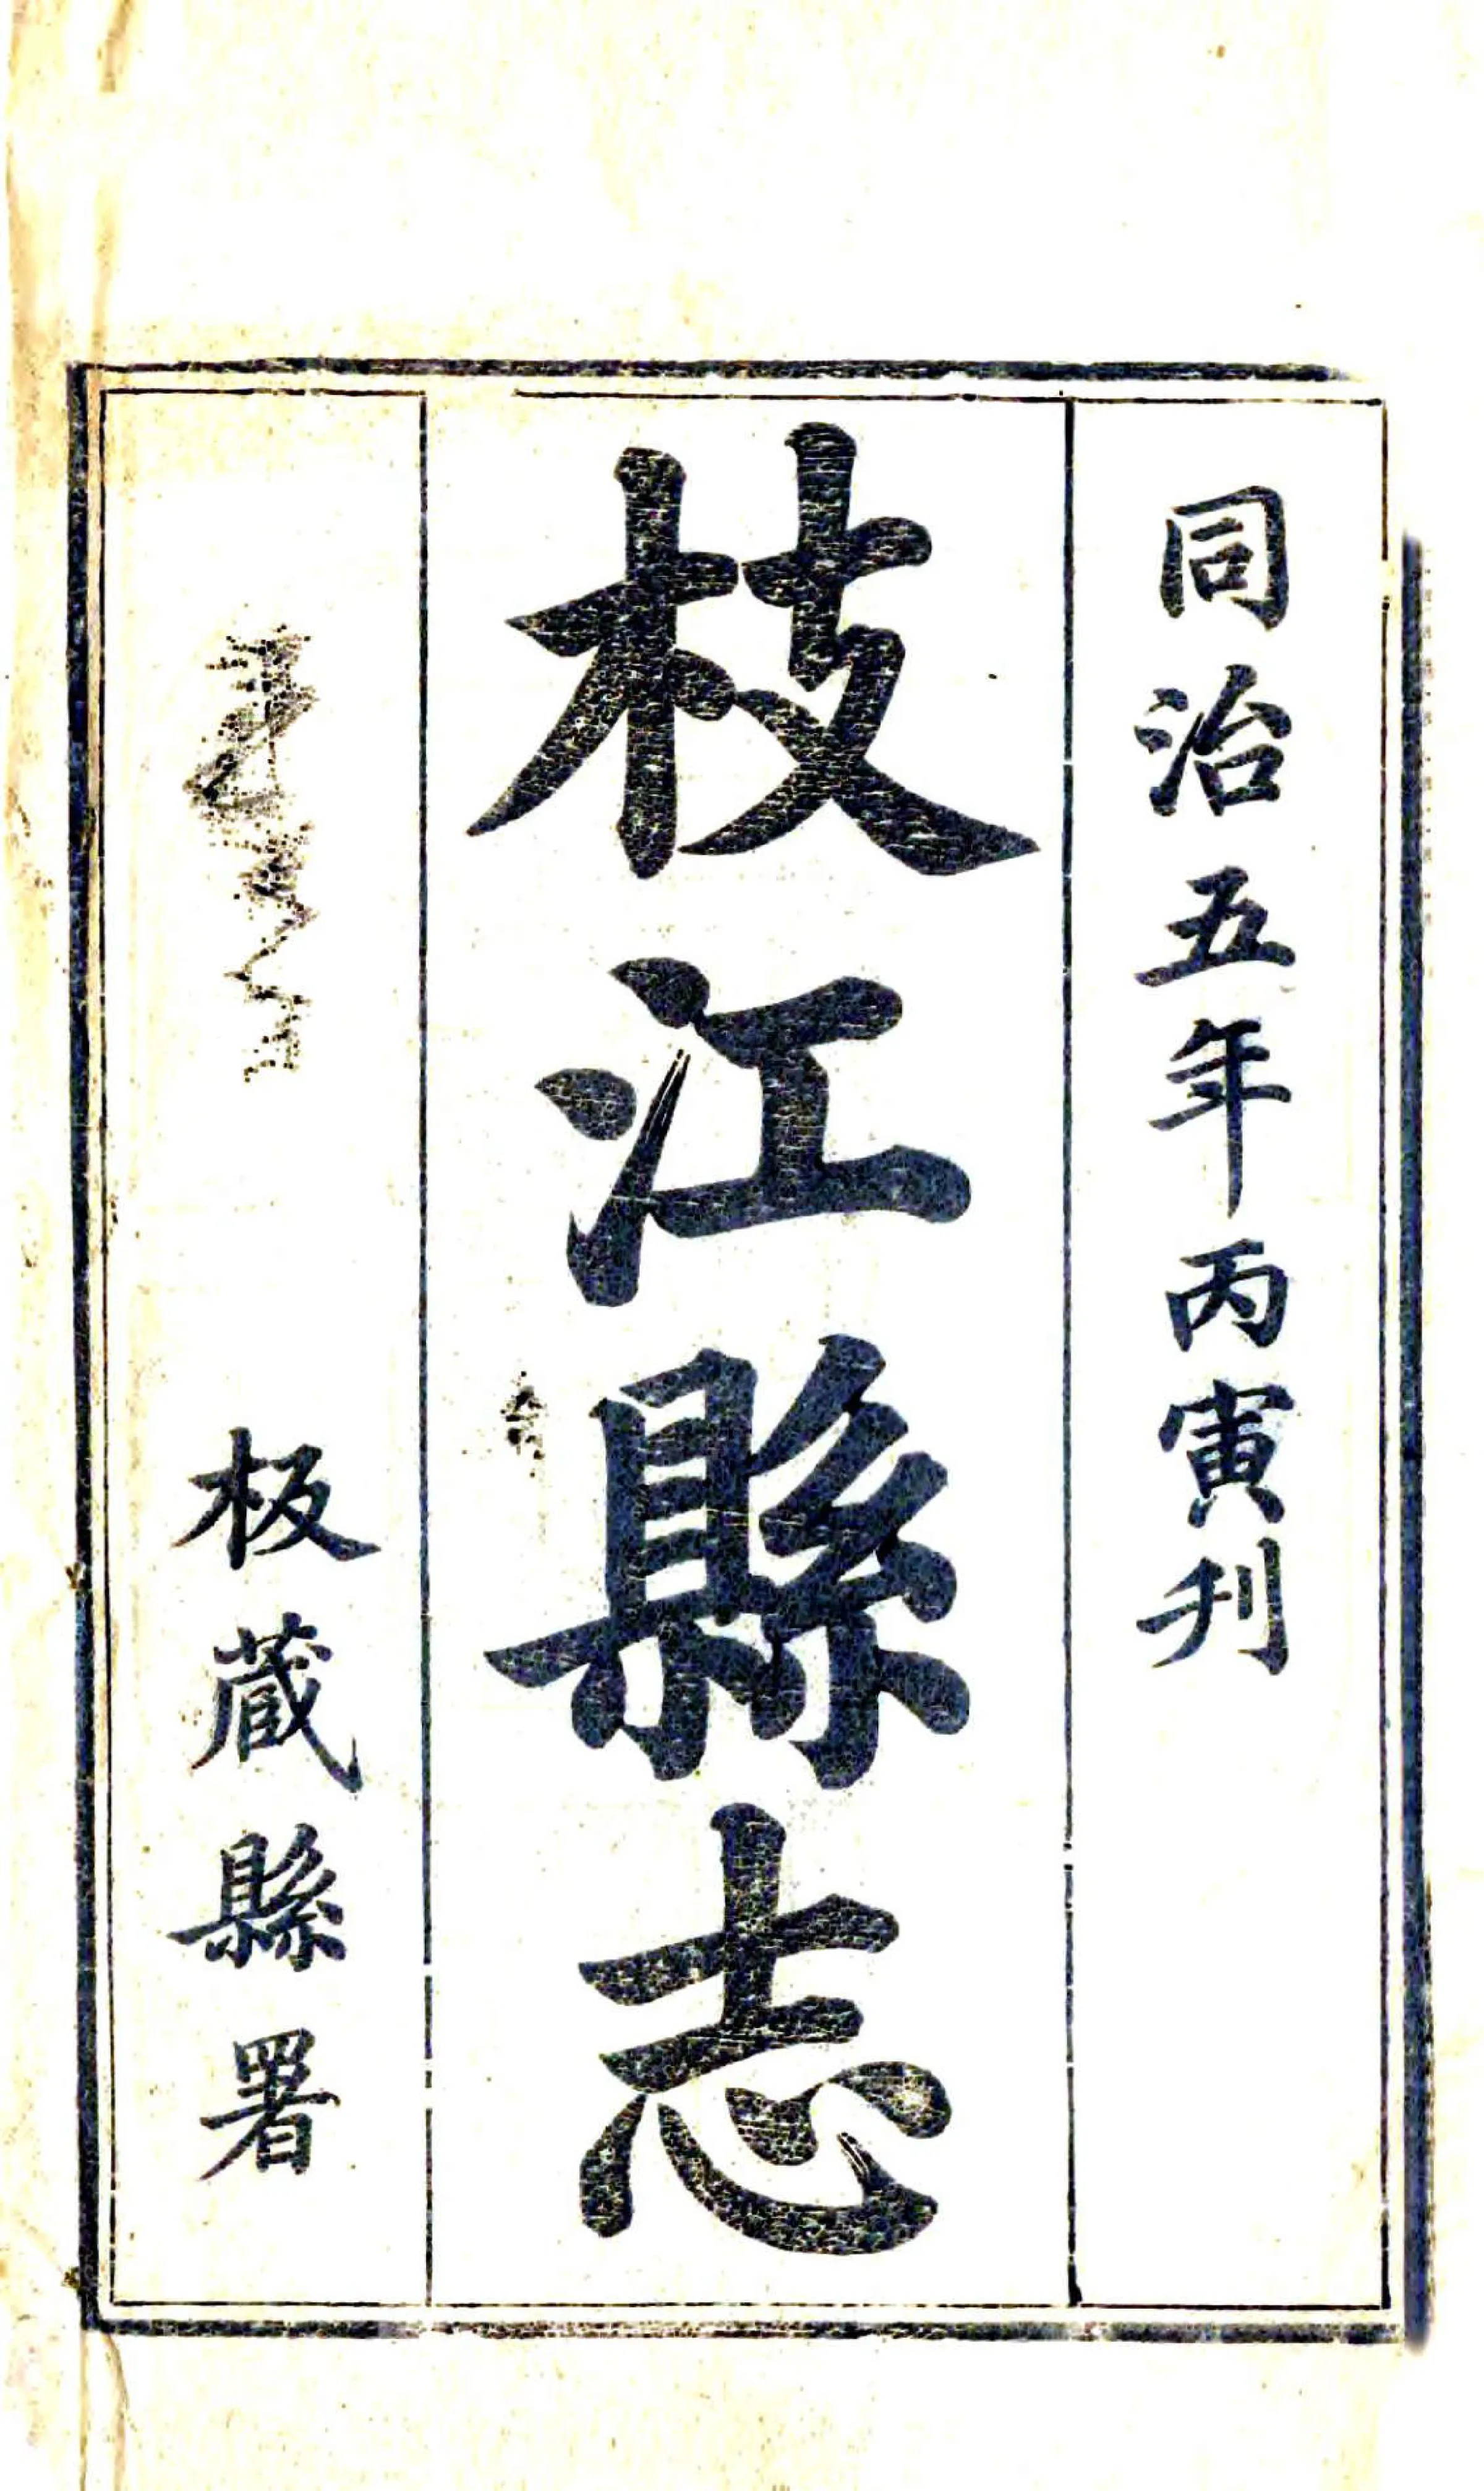 同治五年丙寅刋
枝江縣志
板蔵縣署